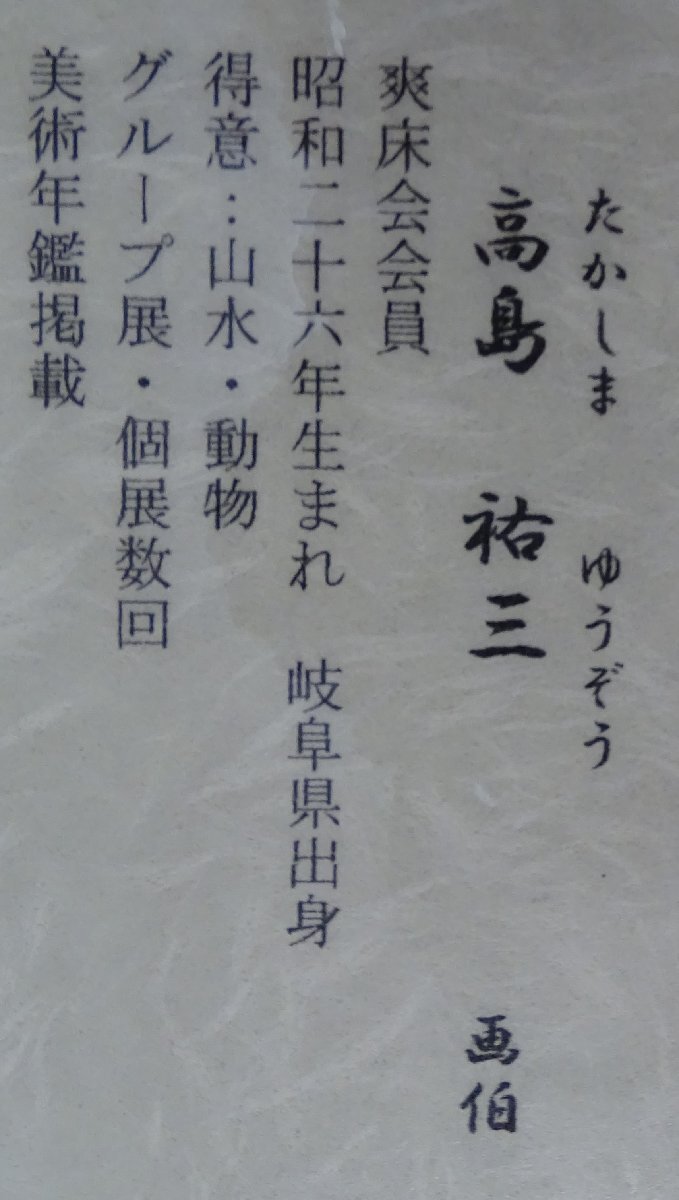 たかしま ゆうぞう
高島 祐三 画伯
爽床会会員
昭和二十六年生まれ 岐阜県出身
得意:山水・動物
グループ展・個展数回
美術年鑑掲載